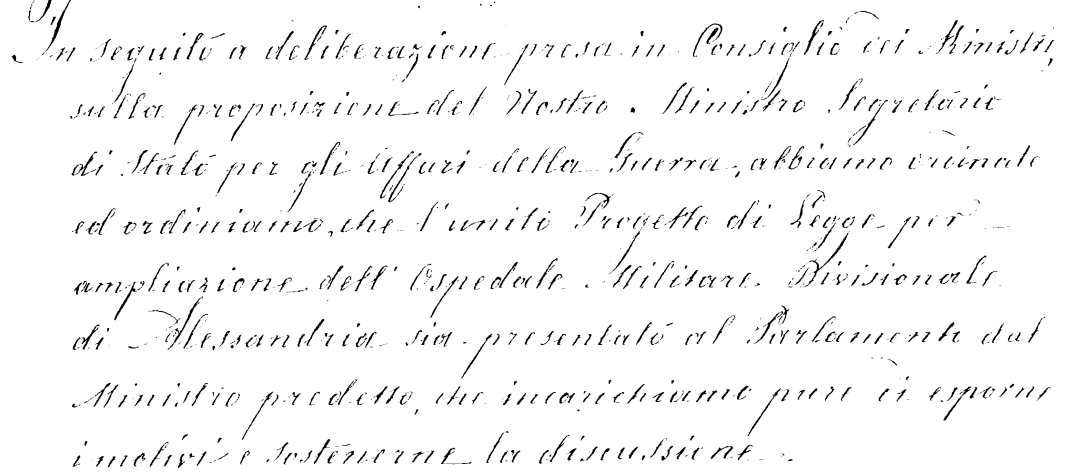 In seguito a deliberazione presa in Consiglio dei Ministri,
sulla proposizione del Nostro Ministro Segretario
di Stato per gli Affari della Guerra, abbiamo ordinato
ed ordiniamo, che l'unito Progetto di Legge per
ampliazione dell'Ospedale Militare Divisionale
di Alessandria sia presentato al Parlamento dal
Ministro predetto, che incarichiamo pure di esporne
i motivi e sostenerne la discussione.